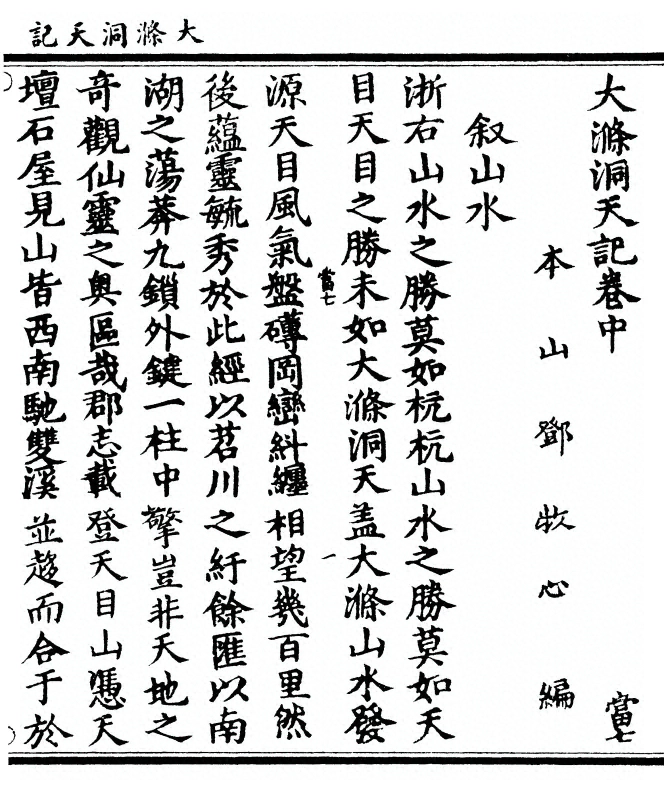 大滌洞天記
大滌洞天記卷中　當七
本山鄧牧心編
叙山水
浙右山水之勝莫如杭杭山水之勝莫如天
目天目之勝未如大滌洞天盖大滌山水發
當七　一
源天目風氣盤礴岡巒糾纏相望幾百里然
後藴靈毓秀於此經以苕川之紆餘匯以南
湖之蕩莽九鎖外鍵一柱中擎豈非天地之
奇觀仙靈之奥區哉郡志載登天目山憑天
壇石屋見山皆西南馳雙溪並趍而合于於